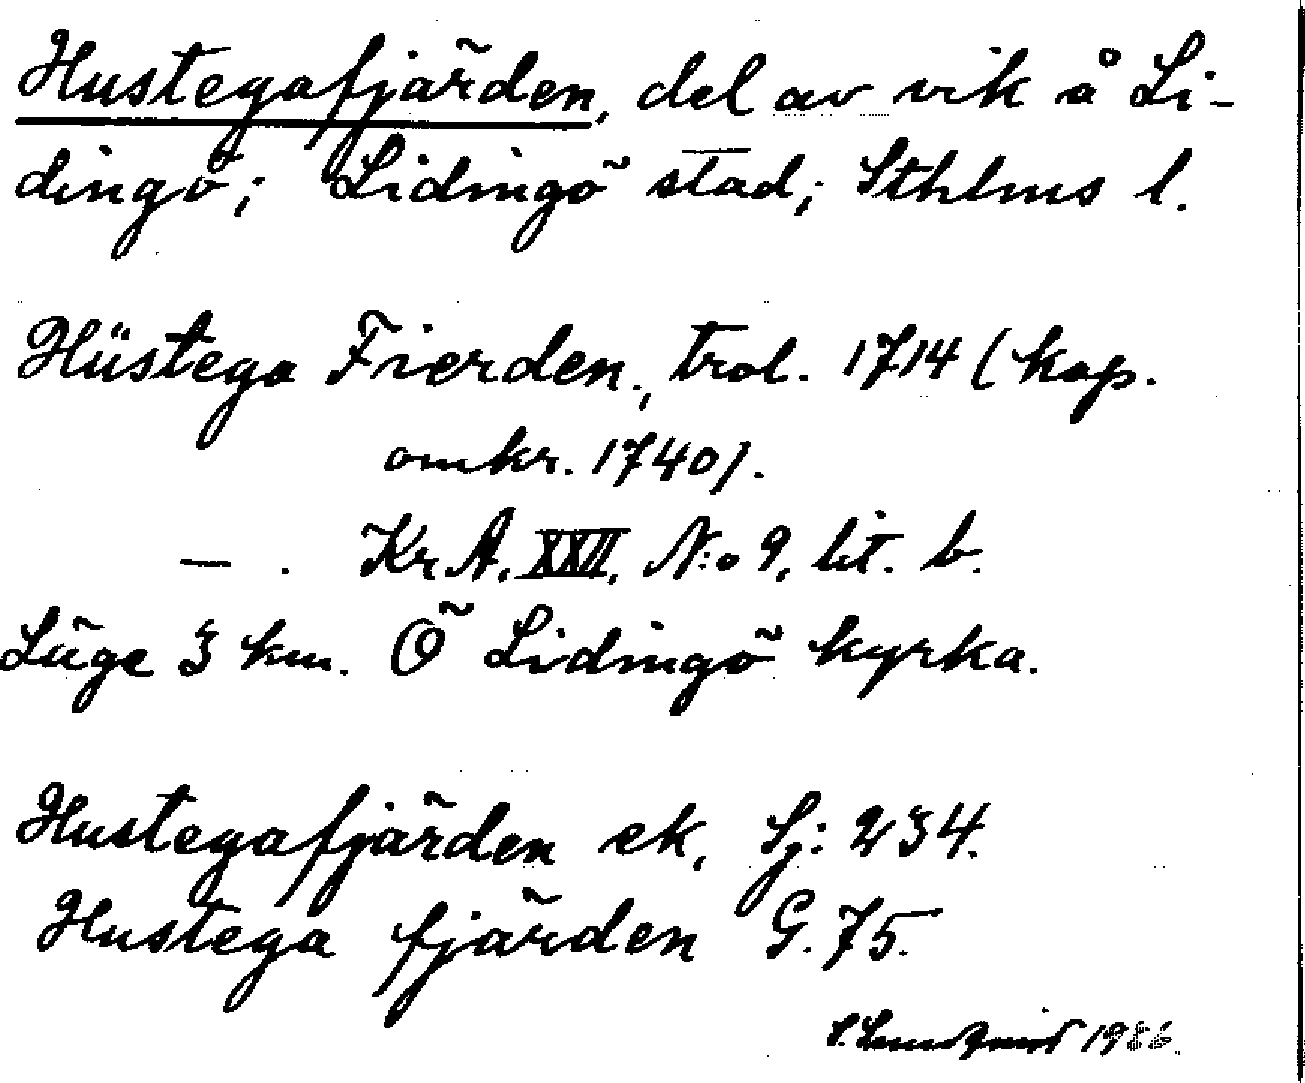 Hustegafjärden, del av vik å Li-
dingö; Lidingö stad; Sthlms l.
Hüstega Fierden, trol. 1714 (kop.
omkr. 1740).
— . KrA, XXII, N:o 9, lit. b.
Läge 3 km. Ö Lidingö kyrka.
Hustegafjärden ek, Sj: 234.
Hustega fjärden G. 75.
S. Lundqvist 1986.